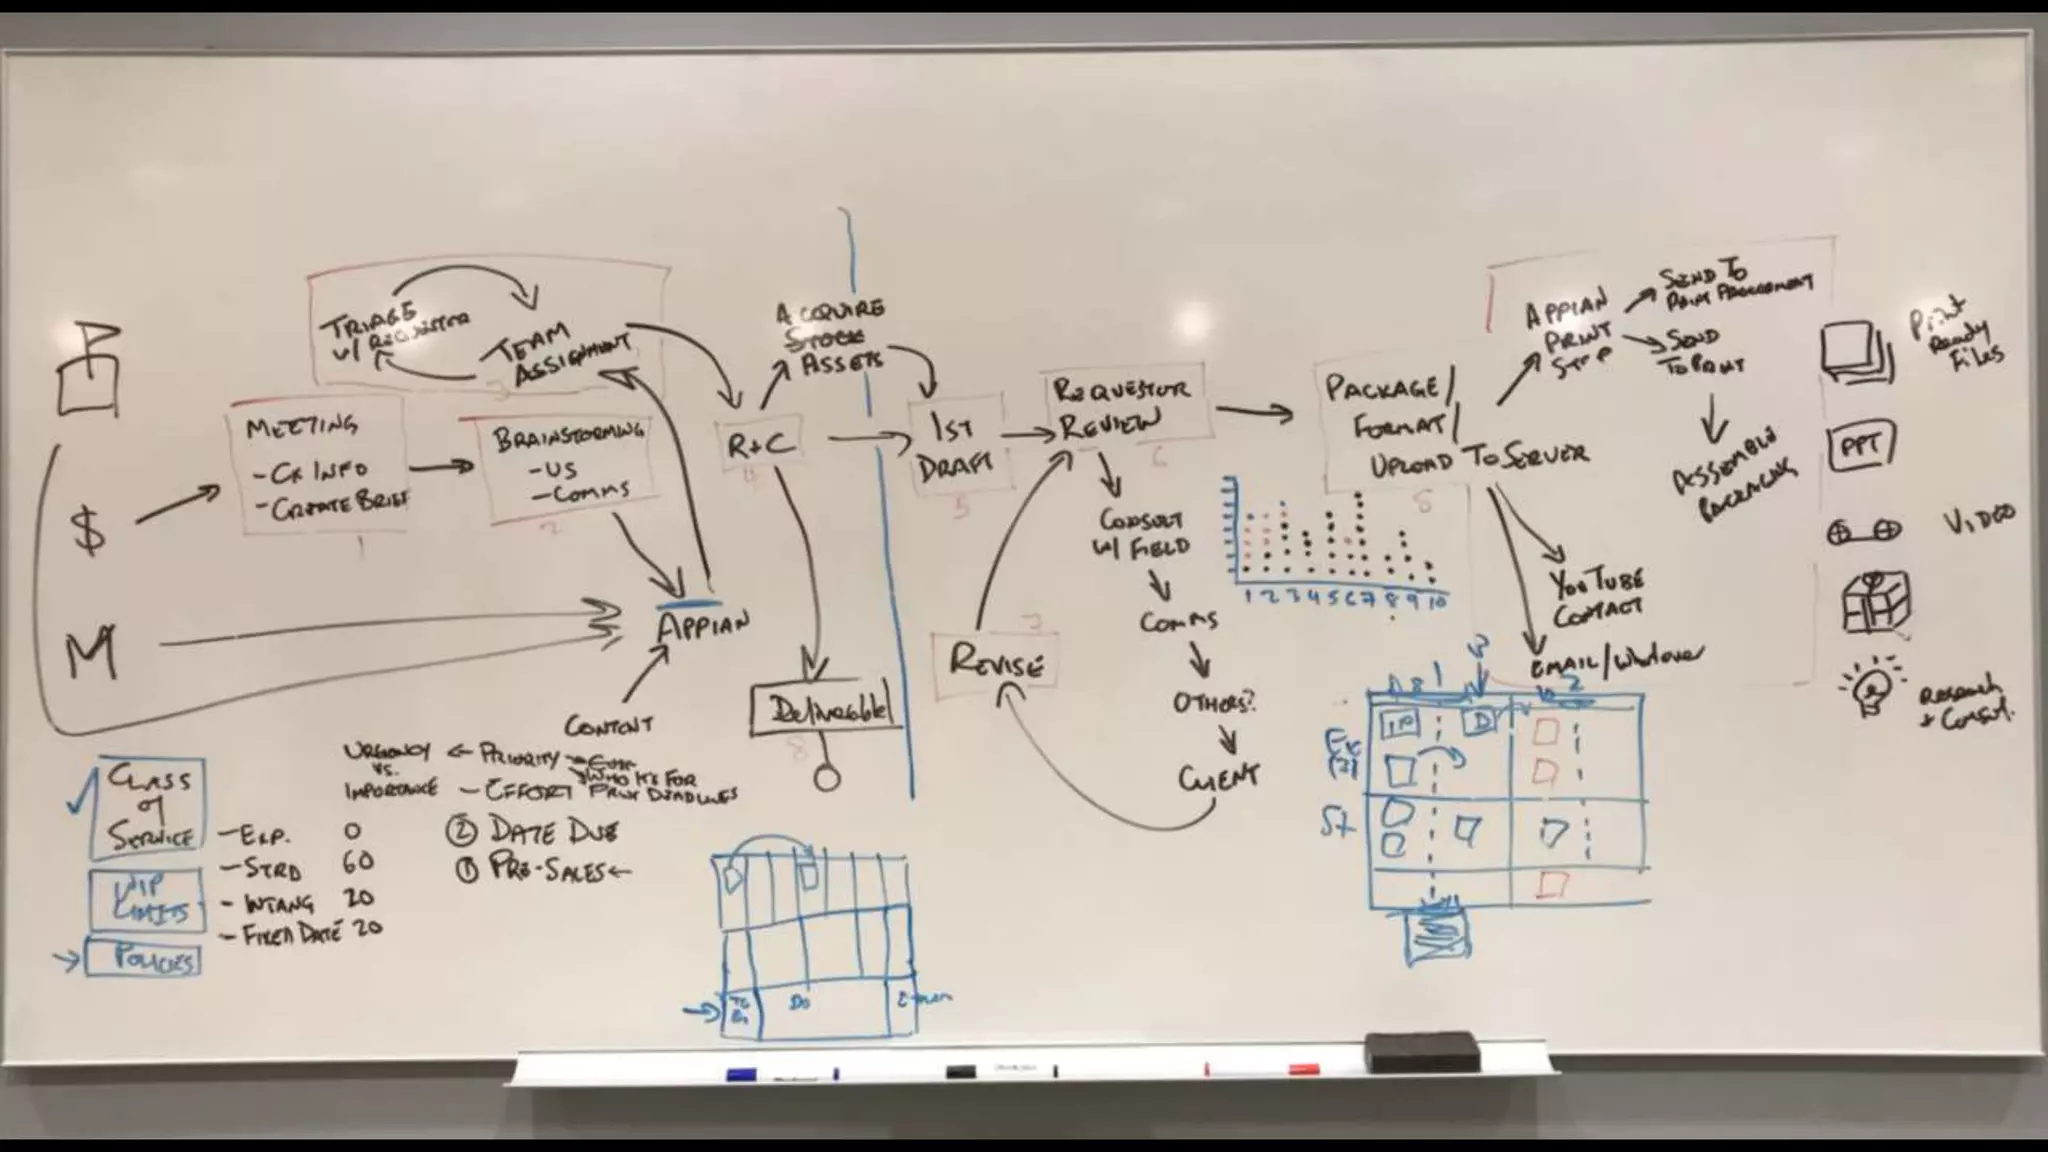 TRIAGE
W/ REQUESTOR
TEAM
ASSIGNMENT
3
MEETING
- CX INFO
- CREATE BRIEF
1
BRAINSTORMING
- US
- COMMS
2
$
M
APPIAN
CONTENT
R+C
4
ACQUIRE
STOCK
ASSETS
Deliverable
8
1ST
DRAFT
5
REQUESTOR
REVIEW
6
CONSULT
W/ FIELD
COMMS
OTHERS?
CLIENT
REVISE
7
PACKAGE/
FORMAT/
UPLOAD TO SERVER
8
APPIAN
PRINT
STEP
SEND TO
PRINT PROCUREMENT
SEND
TO PRINT
ASSEMBLE
PACKAGING
YOUTUBE
CONTACT
EMAIL/Whatever
Print
Ready
Files
PPT
VIDEO
Research
+ Consul.
1 2 3 4 5 6 7 8 9 10
URGENCY
VS.
IMPORTANCE
PRIORITY
WHO IT'S FOR
- EFFORT
PRINT DEADLINES
② DATE DUE
① PRE-SALES
CLASS
of
SERVICE
- EXP. 0
- STRD 60
- INTANG 20
- FIXED DATE 20
WIP
LIMITS
POLICIES
To
Do
Do
1
2
3
IP
D
Ex
(3)
St